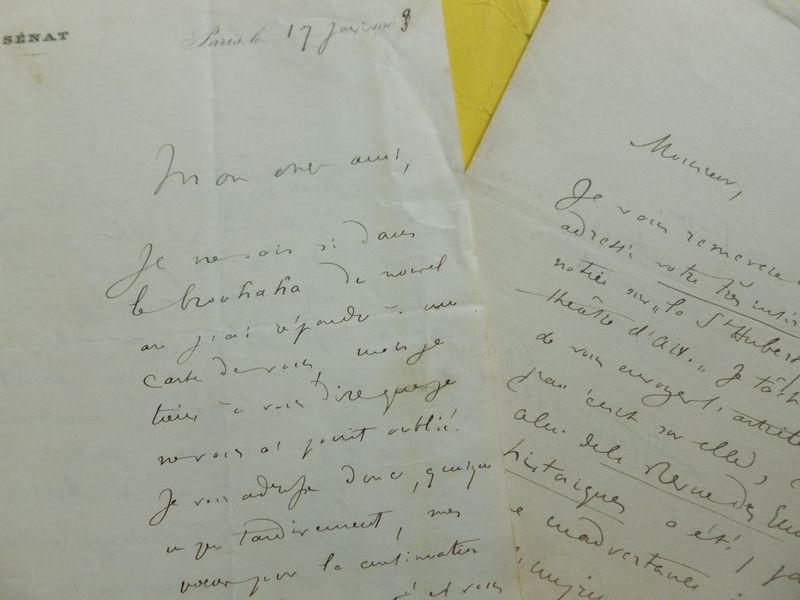 SÉNAT
Paris, le 17 Janv 1903
Mon cher ami,
Je ne sais si dans
le brouhaha du nouvel
an j'ai répondu à une
carte de vous, mais je
tiens à vous dire que je
ne vous ai point oublié.
Je vous adresse donc, quoique
un peu tardivement, mes
voeux pour la continuation
et vous
Monsieur,
Je vous remercie
adressé votre très
notice sur "la St Hubert
théâtre d'Aix". Je
de vous envoyer l'article
sur elle,
celui de la Revue des
historiques a été
inadvertance